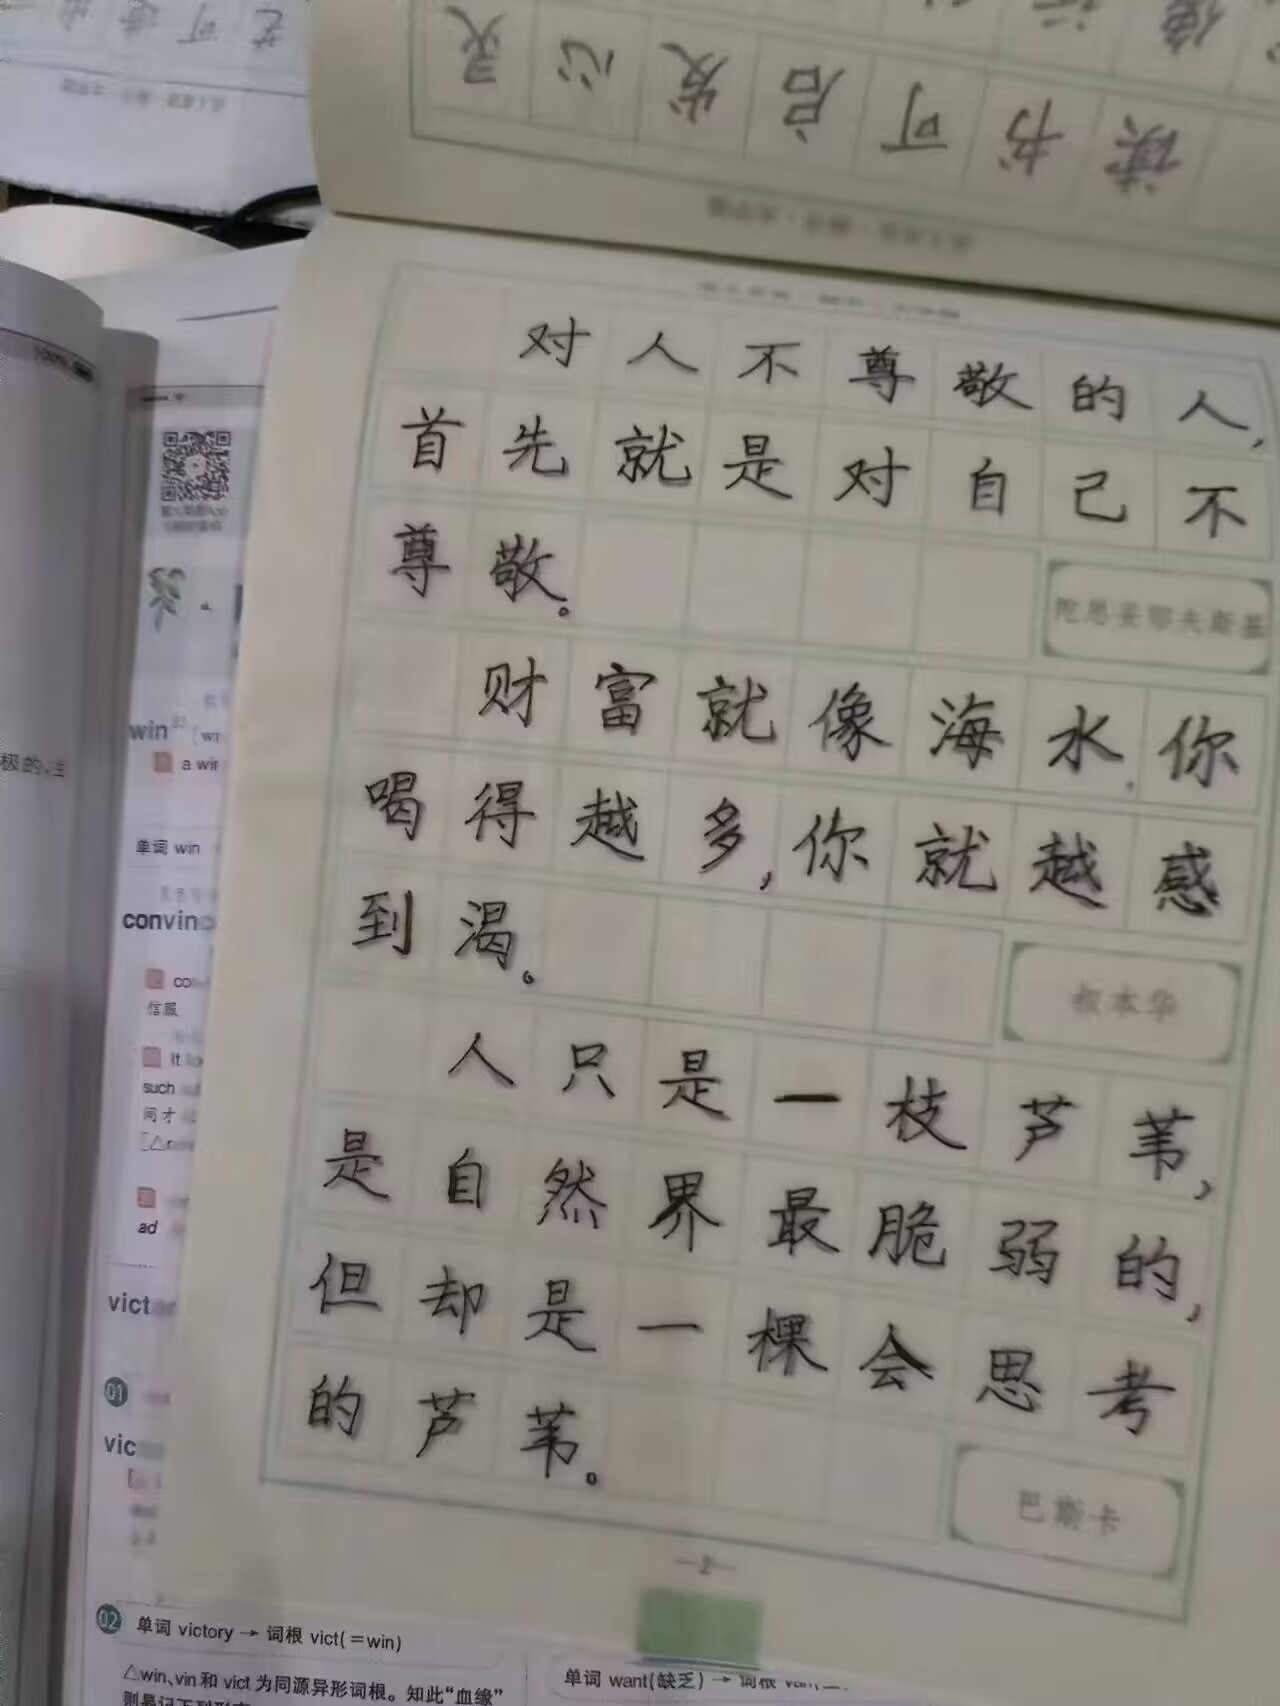 读书可启发心灵
对人不尊敬的人,
首先就是对自己不
尊敬。
陀思妥耶夫斯基
财富就像海水,你
喝得越多,你就越感
到渴。
叔本华
人只是一枝芦苇,
是自然界最脆弱的,
但却是一棵会思考
的芦苇。
巴斯卡
—2—
极的,
win
a wir
单词 win
convinc
信服
It
such
ad
vict
01
vic
02 单词 victory → 词根 vict(=win)
△win、vin 和 vict 为同源异形词根。知此“血缘”
单词 want(缺乏) → 词根